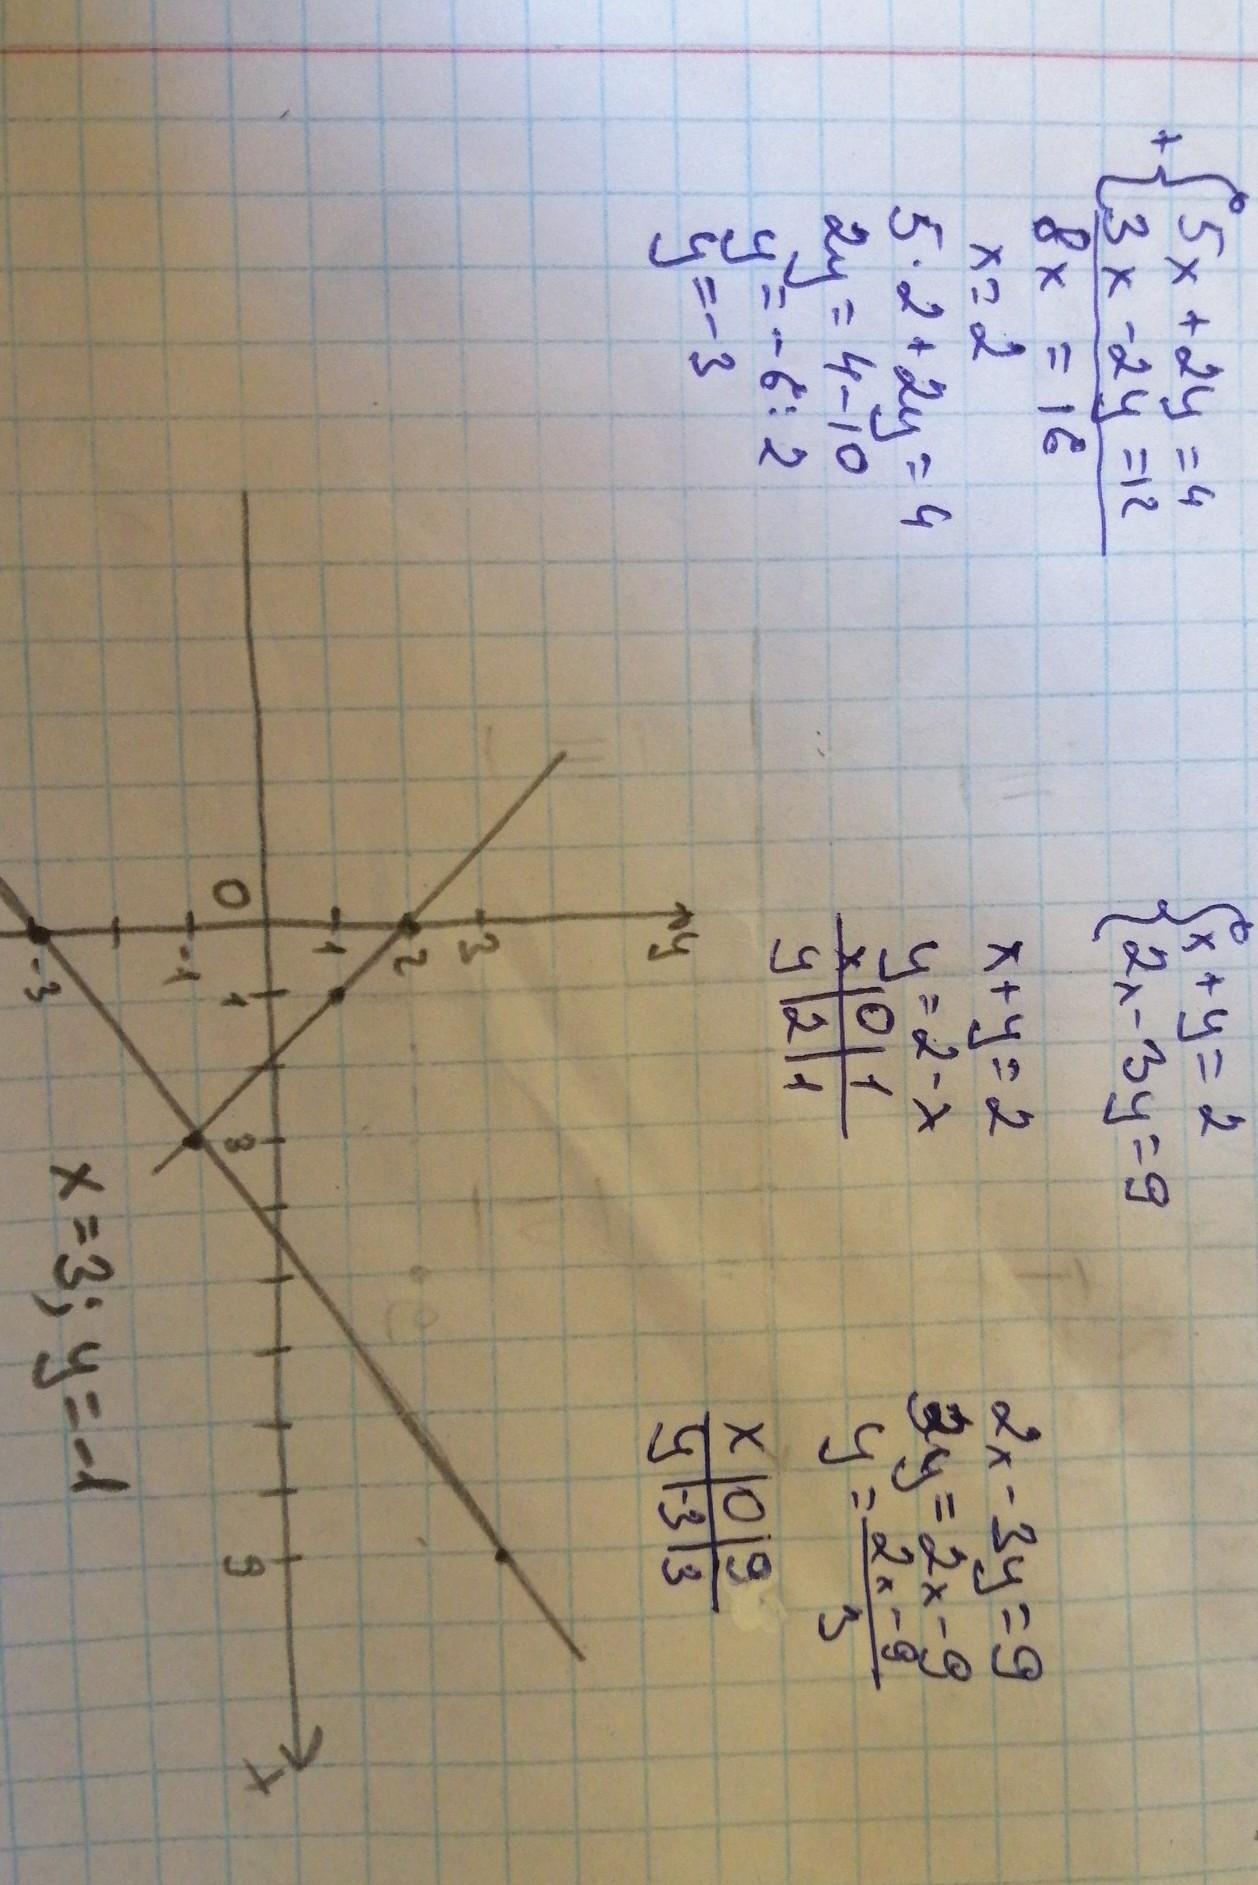 + { 5x + 2y = 4
3x - 2y = 12
8x = 16
x = 2
5 · 2 + 2y = 4
2y = 4 - 10
y = -6 : 2
y = -3
{ x + y = 2
2x - 3y = 9
x + y = 2
y = 2 - x
x | 0 | 1
y | 2 | 1
2x - 3y = 9
3y = 2x - 9
y = 2x - 9
3
x | 0 | 9
y | -3 | 3
y
3
2
1
0 1 3 9 x
-1
-3
x = 3; y = -1